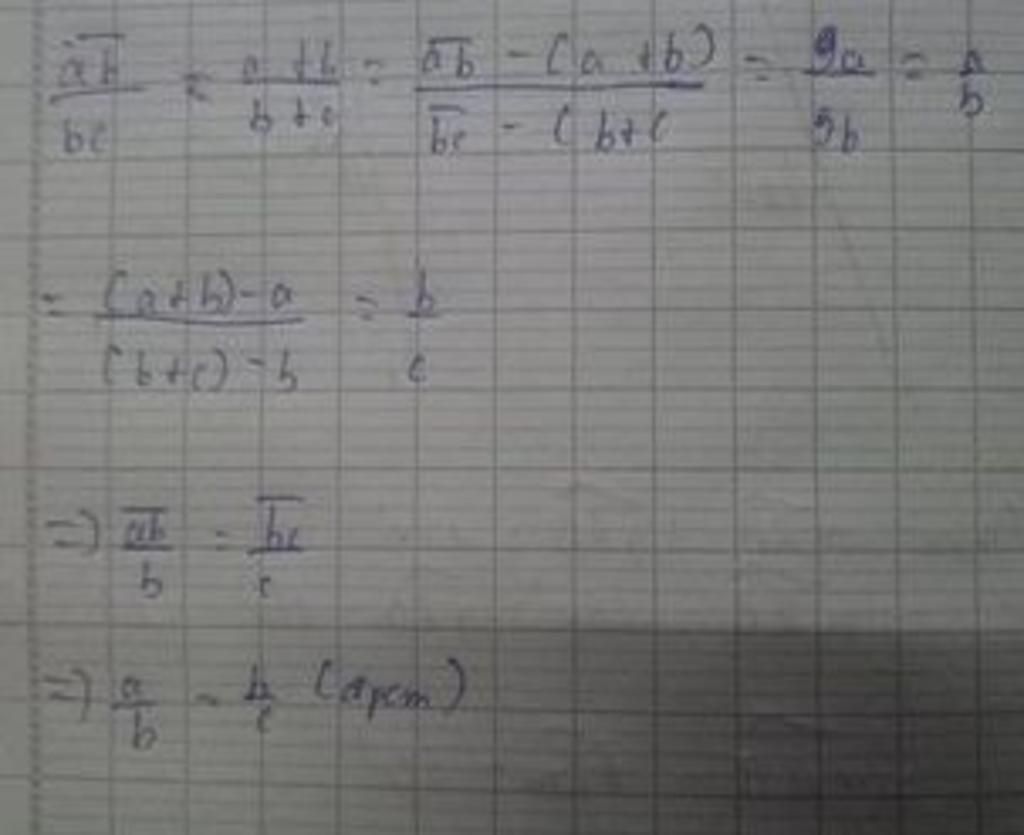 $\frac{\overline{ab}}{bc} = \frac{a+b}{b+c} = \frac{\overline{ab} - (a+b)}{\overline{bc} - (b+c} = \frac{9a}{9b} = \frac{a}{b}$
$= \frac{(a+b)-a}{(b+c)-b} = \frac{b}{c}$
$\Rightarrow \frac{\overline{ab}}{b} = \frac{\overline{bc}}{c}$
$\Rightarrow \frac{a}{b} = \frac{b}{c}$ (đpcm)